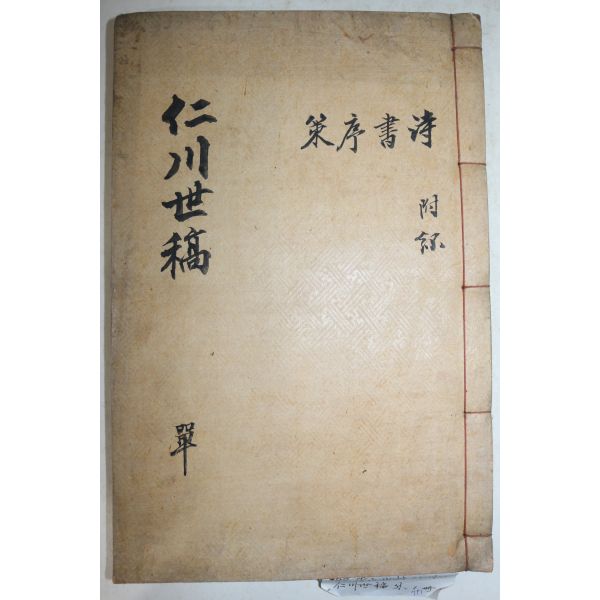 仁川世稿
單
詩書序策
附錄
仁川世稿